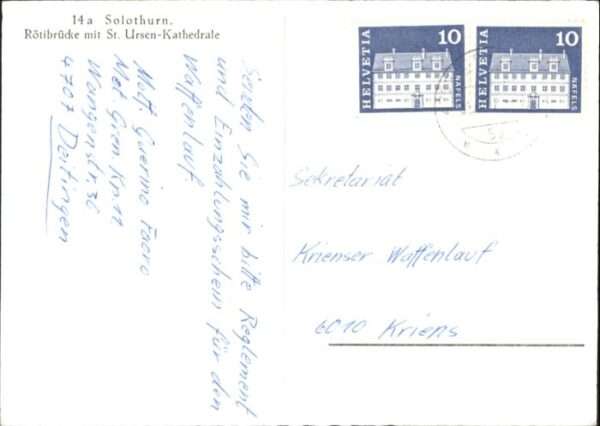 14a Solothurn.
Rötibrücke mit St. Ursen-Kathedrale
HELVETIA 10 NÄFELS
HELVETIA 10 NÄFELS
Senden Sie mir bitte Reglement
und Einzahlungsschein für den
Waffenlauf
Guerino
Wangenstr. 36
4707 Deitingen
Sekretariat
Krienser Waffenlauf
6010 Kriens